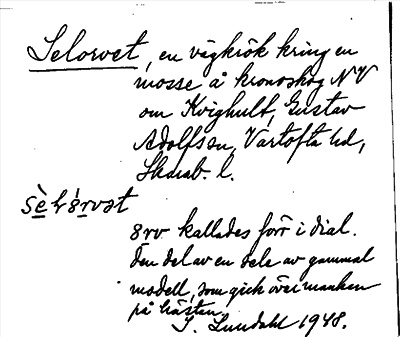 Selorvet, en vägkrök kring en
mosse å kronoskog NV
om Kvighult, Gustav
Adolfs sn, Vartofta hd,
Skarab. l.
sè̱lʹ8̱rvət
8rv kallades förr i dial.
den del av en sele av gammal
modell, som gick över manken
på hästen.
J. Lundahl 1948.